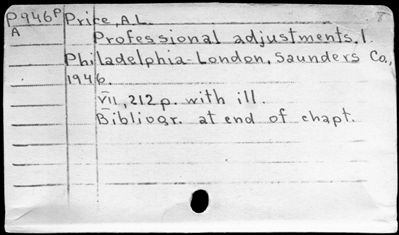 P946P Price, A.L.
A Professional adjustments. I.
Philadelphia-London, Saunders Co.,
1946.
VII, 212 p. with ill.
Bibliogr. at end of chapt.